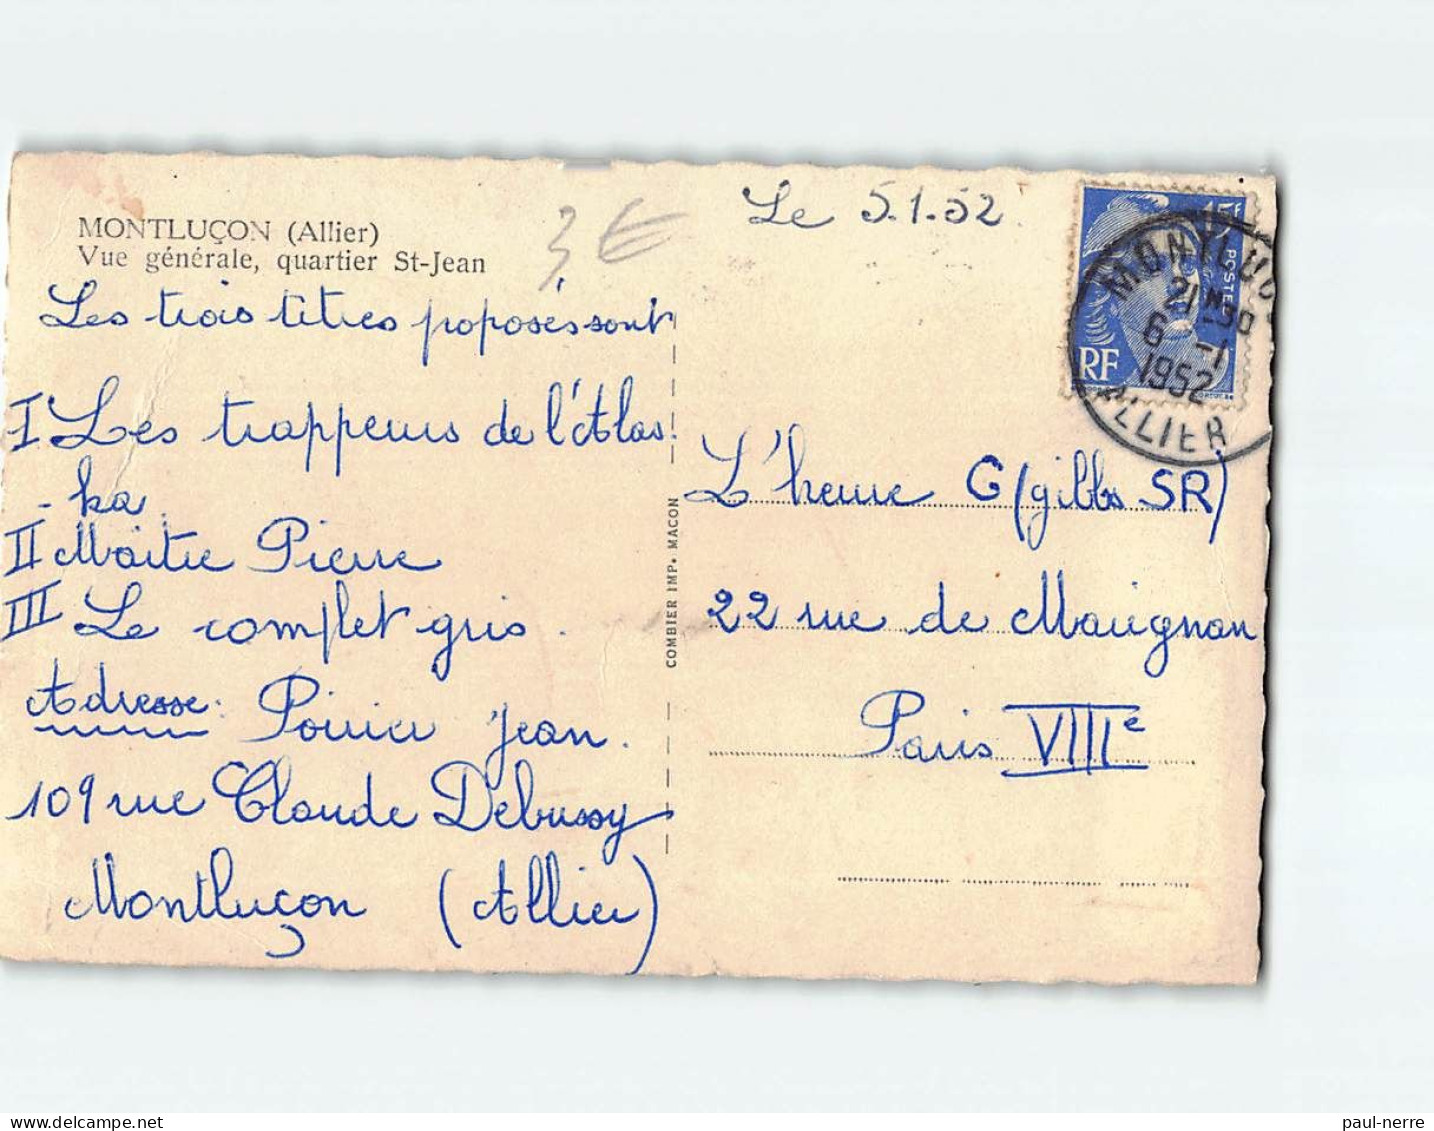 MONTLUÇON (Allier)
Vue générale, quartier St-Jean
3 €
Les trois titres poposés sont
I Les trappeurs de l'Alas
- ka
II Maitre Pierre
III Le complet gris.
Adresse: Poirier Jean.
109 rue Claude Debussy
Montluçon (Allier)
COMBIER IMP. MACON
Le 5.1.52
15F
POSTES
RF
MONTLUÇO
21H30
6 -1
1952
ALLIER
L'heure G (gibbs SR)
22 rue de Marignan
Paris VIIIe
paul-nerre